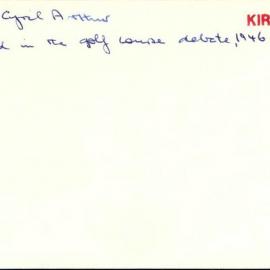 Cyril Arthur KIR
d in the golf course debate, 1946